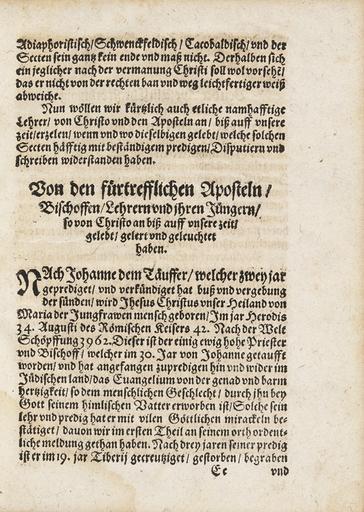 Adiaphoristisch/Schwenckfeldisch/Cacobaldisch/vnd der
Secten sein gantz kein ende vnd maß nicht. Derhalben sich
ein jeglicher nach der vermanung Christi soll wol vorsehē/
das er nicht von der rechten ban vnd weg leichtfertiger weiß
abweiche.
Nun wöllen wir kürtzlich auch etliche namhafftige
Lehrer/ von Christo vnd den Aposteln an/ biß auff vnsere
zeit/erzelen/wenn vnd wo dieselbigen gelebt/welche solchen
Secten häfftig mit beständigem predigen/Disputiern vnd
schreiben widerstanden haben.
Von den fürtrefflichen Aposteln/
Bischoffen/Lehrern vnd jhren Jüngern/
so von Christo an biß auff vnsere zeit/
gelebt/ gelert vnd geleuchtet
haben.
NAch Johanne dem Täuffer/ welcher zwey jar
geprediget/ vnd verkündiget hat buß vnd vergebung
der sünden/ wird Jhesus Christus vnser Heiland von
Maria der Jungfrawen mensch geboren/Jm jar Herodis
34. Augusti des Römischen Keisers 42. Nach der Welt
Schöpffung 3962. Dieser ist der einig ewig hohe Priester
vnd Bischoff/ welcher im 30. Jar von Johanne getaufft
worden/ vnd hat angefangen zupredigen hin vnd wider im
Jüdischen land/das Euangelium von der genad vnd barm
hertzigkeit/ so dem menschlichen Geschlecht/ durch jhn bey
Gott seinem himlischen Vatter erworben ist/Solche sein
lehr vnd predig hat er mit vilen Göttlichen mirackeln be-
stätiget/ dauon wir im ersten Theil an seinem orth ordent-
liche meldung gethan haben. Nach dreyen jaren seiner predig
ist er im 19. jar Tiberij gecreutziget/ gestorben/ begraben
Ee vnd